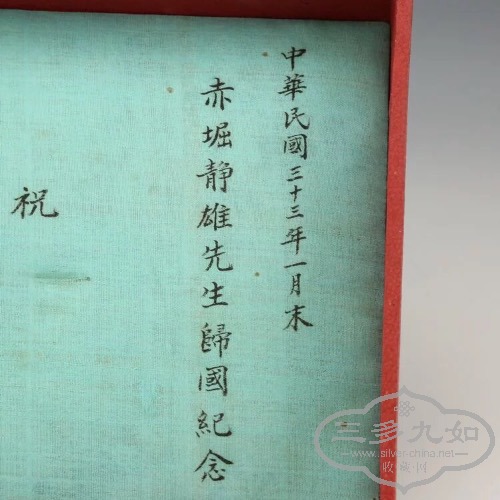 中華民國三十三年一月末
赤堀静雄先生歸國紀念
祝
三多九如
www.silver-china.net
收藏网